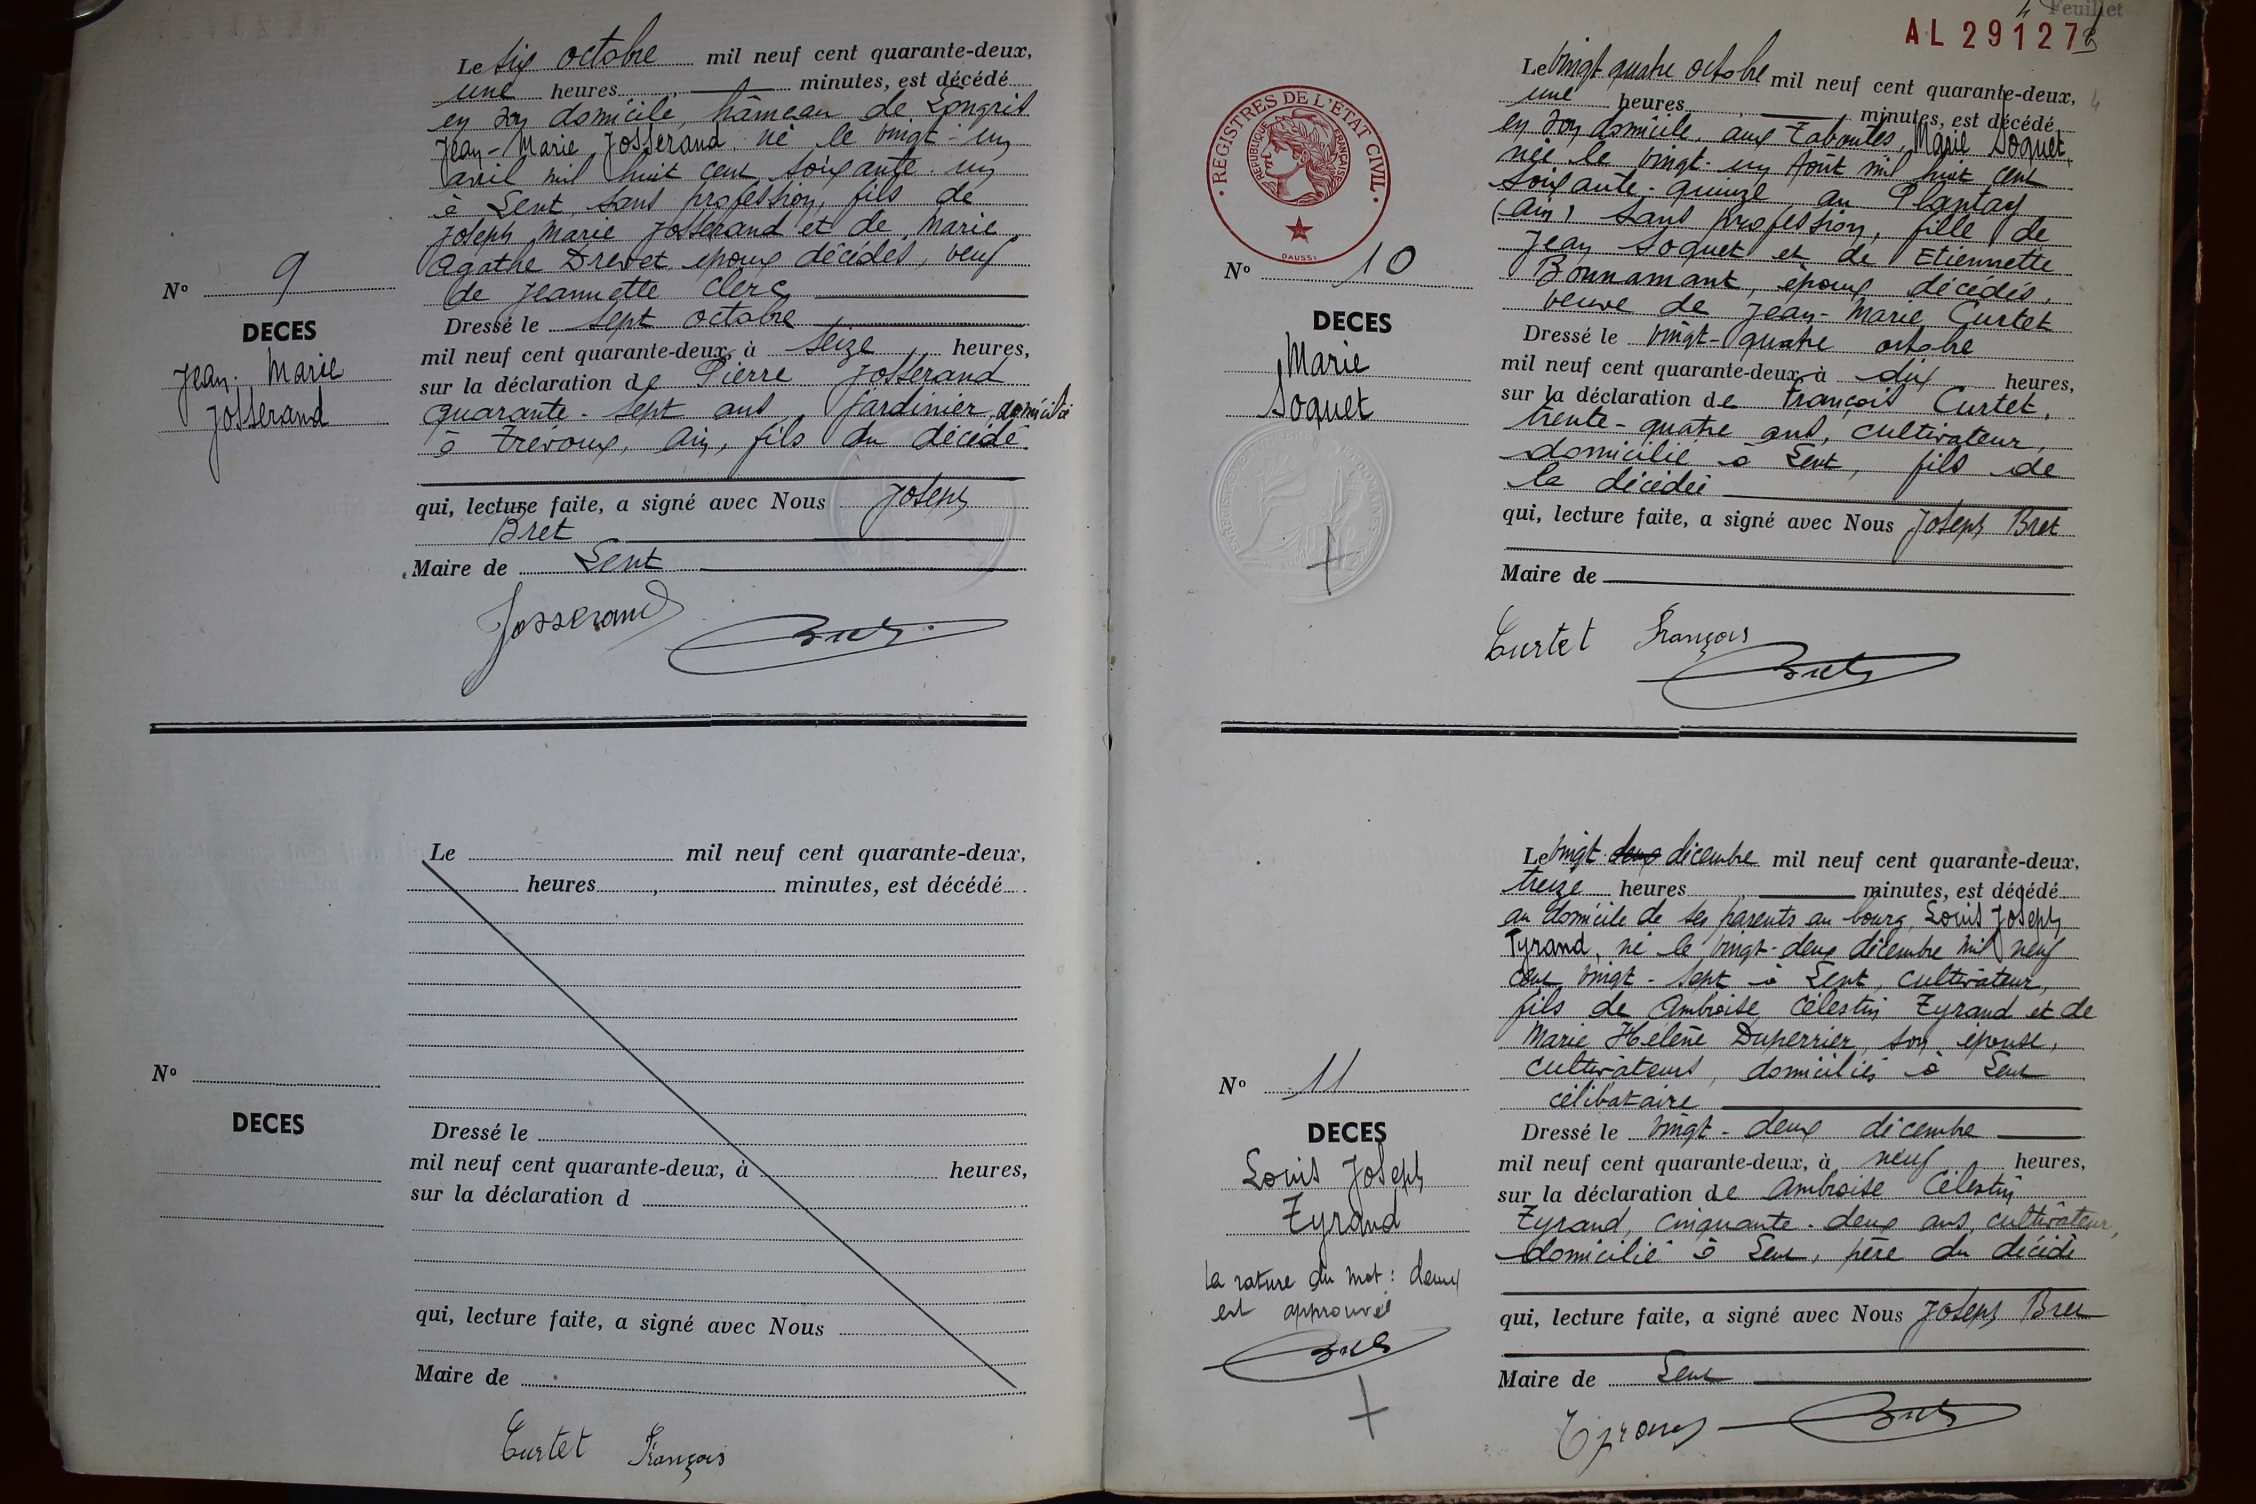 Le six octobre mil neuf cent quarante-deux,
une heures, minutes, est décédé
en son domicile, hâmeau de Longris
Jean-Marie Josserand né le vingt-un
avril mil huit cent soixante-un
à Lent, sans profession, fils de
Joseph Marie Josserand et de Marie
Agathe Drevet époux décédés, veuf
de Jeannette Clerc
Dressé le sept octobre
mil neuf cent quarante-deux, à seize heures,
sur la déclaration de Pierre Josserand
quarante-sept ans, Jardinier domicilié
à Trévoux, Ain, fils du décédé
qui, lecture faite, a signé avec Nous Joseph
Bret
Maire de Lent
Josserand Bret
N° 9
DECES
Jean-Marie
Josserand
Le mil neuf cent quarante-deux,
heures, minutes, est décédé
N°
DECES
Dressé le
mil neuf cent quarante-deux, à heures,
sur la déclaration d
qui, lecture faite, a signé avec Nous
Maire de
Curtet François
Feuillet
4
AL 29127
REGISTRES DE L'ETAT CIVIL
REPUBLIQUE FRANÇAISE
DAUSSY
Le vingt quatre octobre mil neuf cent quarante-deux,
une heures minutes, est décédé
en son domicile, aux Taboutes, Marie Soquet
née le vingt-un Août mil huit cent
soixante-quinze au Plantay
(Ain) sans profession, fille de
Jean Soquet et de Etiennette
Bonnamant, époux décédés,
veuve de Jean-Marie Curtet
Dressé le vingt-quatre octobre
mil neuf cent quarante-deux, à dix heures,
sur la déclaration de François Curtet,
trente-quatre ans, cultivateur,
domicilié à Lent, fils de
la décédée
qui, lecture faite, a signé avec Nous Joseph Bret
Maire de
Curtet François
Bret
N° 10
DECES
Marie
Soquet
Le vingt deux décembre mil neuf cent quarante-deux,
treize heures minutes, est décédé
au domicile de ses parents au bourg, Louis Joseph
Tyrand, né le vingt-deux décembre mil neuf
cent vingt-sept à Lent, cultivateur,
fils de Ambroise Célestin Tyrand et de
Marie Hélène Duperrier, son épouse,
cultivateurs, domiciliés à Lent
célibataire
Dressé le vingt-deux décembre
mil neuf cent quarante-deux, à neuf heures,
sur la déclaration de Ambroise Célestin
Tyrand, cinquante-deux ans, cultivateur,
domicilié à Lent, père du décédé
qui, lecture faite, a signé avec Nous Joseph Bret
Maire de Lent
Tyrand Bret
N° 11
DECES
Louis Joseph
Tyrand
la rature du mot : deux
est approuvée
Bret